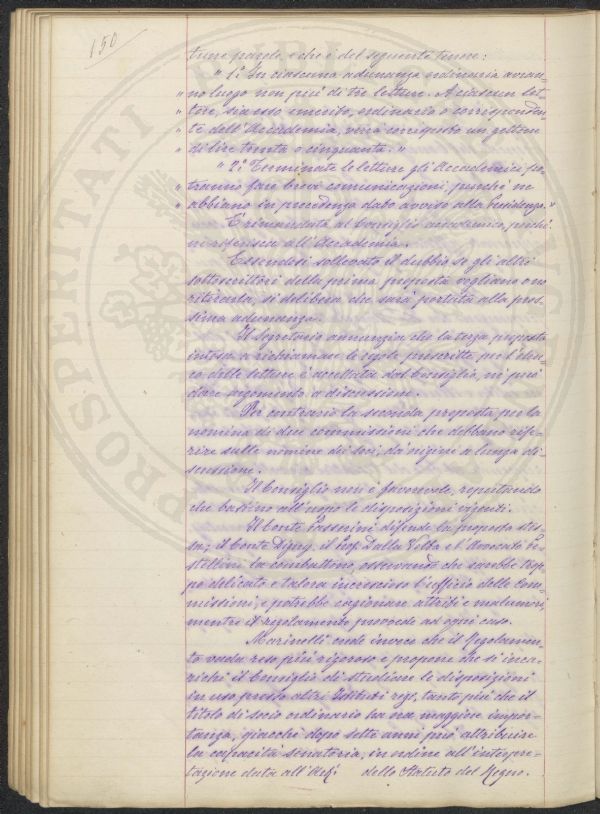 150
tune parole, e che è del seguente tenore:
" 1.º In ciascuna adunanza ordinaria avran-
" no luogo non più di tre letture. A ciascun let-
" tore, sia esso emerito, ordinario o corrisponden-
" te dell'Accademia, verrà corrisposto un gettone
" di lire trenta o cinquanta. "
" 2.º Terminate le letture gli Accademici po-
" tranno fare brevi comunicazioni, purché ne
" abbiano in precedenza dato avviso alla Presidenza. "
È rimandata al Consiglio accademico, perché
ne riferisca all'Accademia.
Essendosi sollevato il dubbio se gli altri
sottoscrittori della prima proposta vogliano o no
ritirarla, si delibera che sarà portata alla pros-
sima adunanza.
Il Segretario annunzia che la terza proposta
intesa a richiamare le regole prescritte per l'elen-
co delle letture è accettata dal Consiglio, nè può
dare argomento a discussione.
Per contrario la seconda proposta, per la
nomina di due commissioni che debbano rife-
rire sulle nomine dei soci, dà origine a lunga di-
scussione.
Il Consiglio non è favorevole, reputando
che bastino all'uopo le disposizioni vigenti.
Il Conte difende la proposta stes-
sa; il Conte Digny, il Prof. Dalla Volta e l'Avvocato
la combattono, osservando che sarebbe trop-
po delicato e talora increscioso l'ufficio delle Com-
missioni, e potrebbe cagionare attriti e malumori,
mentre il regolamento provvede ad ogni caso.
Marinelli crede invece che il Regolamen-
to vada reso più rigoroso e propone che si inca-
richi il Consiglio di studiare le disposizioni
in uso presso altri Istituti regi, tanto più che il
titolo di socio ordinario ha ora maggior impor-
tanza, giacché dopo sette anni può attribuire
la capacità senatoria, in ordine all'interpre-
tazione data all'Art. dello Statuto del Regno.